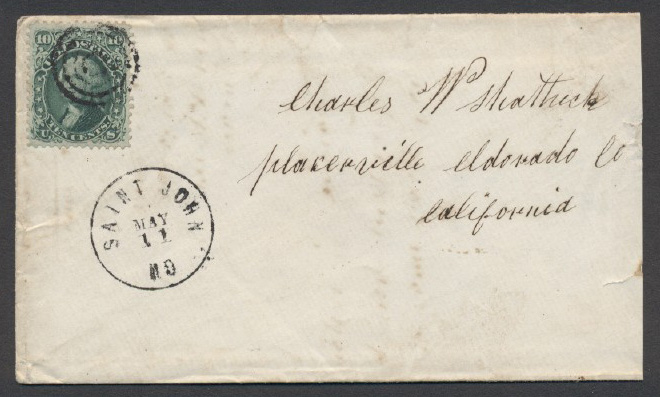 10 10
TEN CENTS
U S
Charles W Shattuck
plakerville eldorado Co
California
SAINT JOHN
MAY
11
MO